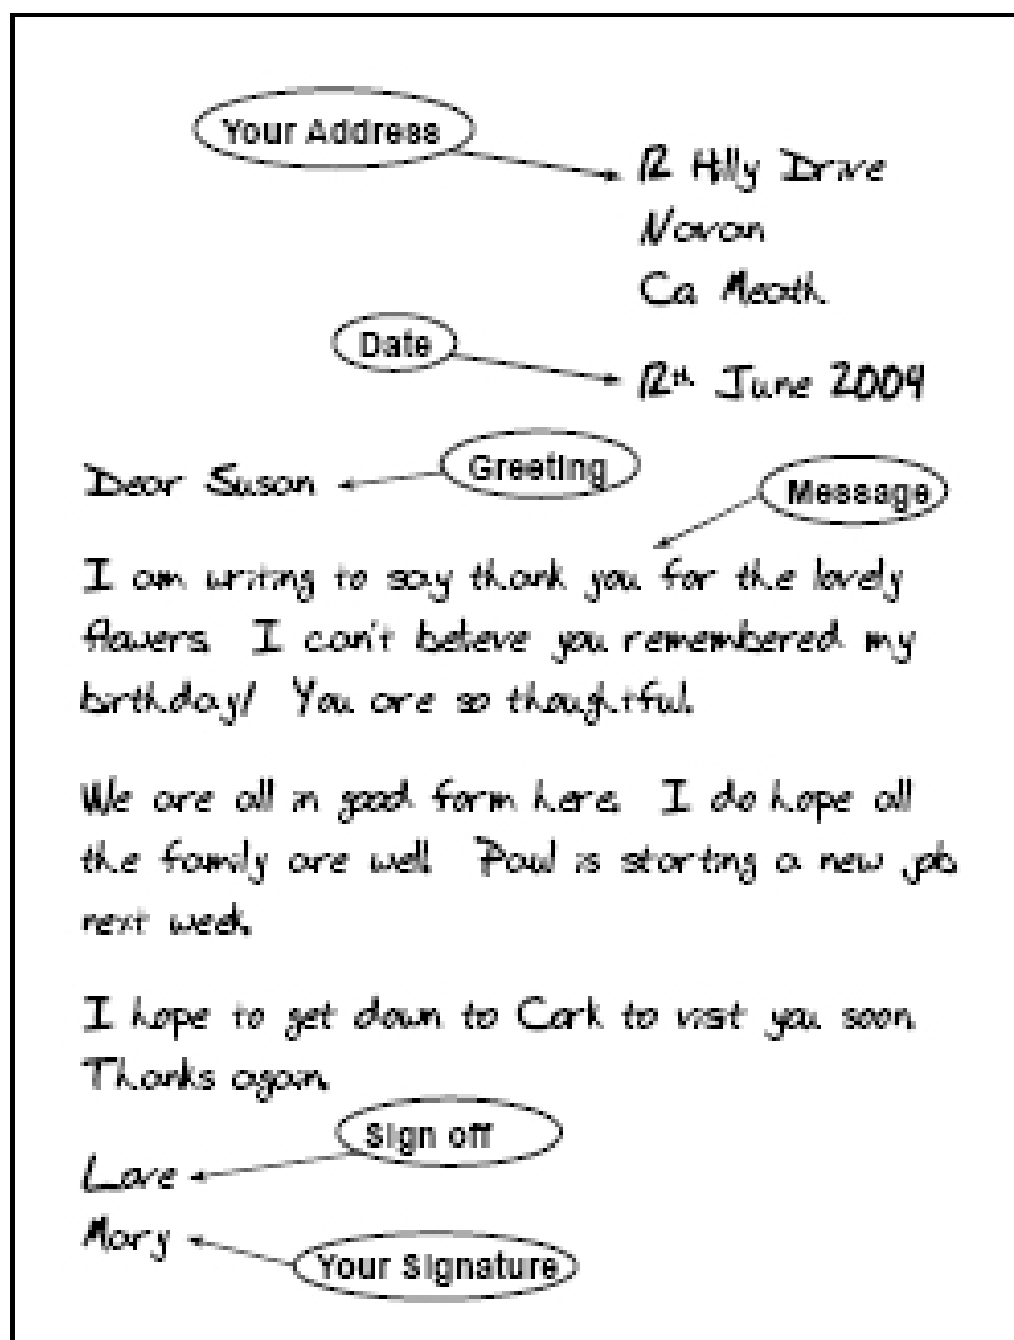 Your Address
12 Hilly Drive
Navan
Co. Meath.
Date
12th June 2009
Dear Susan
Greeting
Message
I am writing to say thank you for the lovely
flowers. I can't believe you remembered my
birthday! You are so thoughtful.
We are all in good form here. I do hope all
the family are well. Paul is starting a new job
next week.
I hope to get down to Cork to visit you soon.
Thanks again.
Sign off
Love
Mary
Your Signature